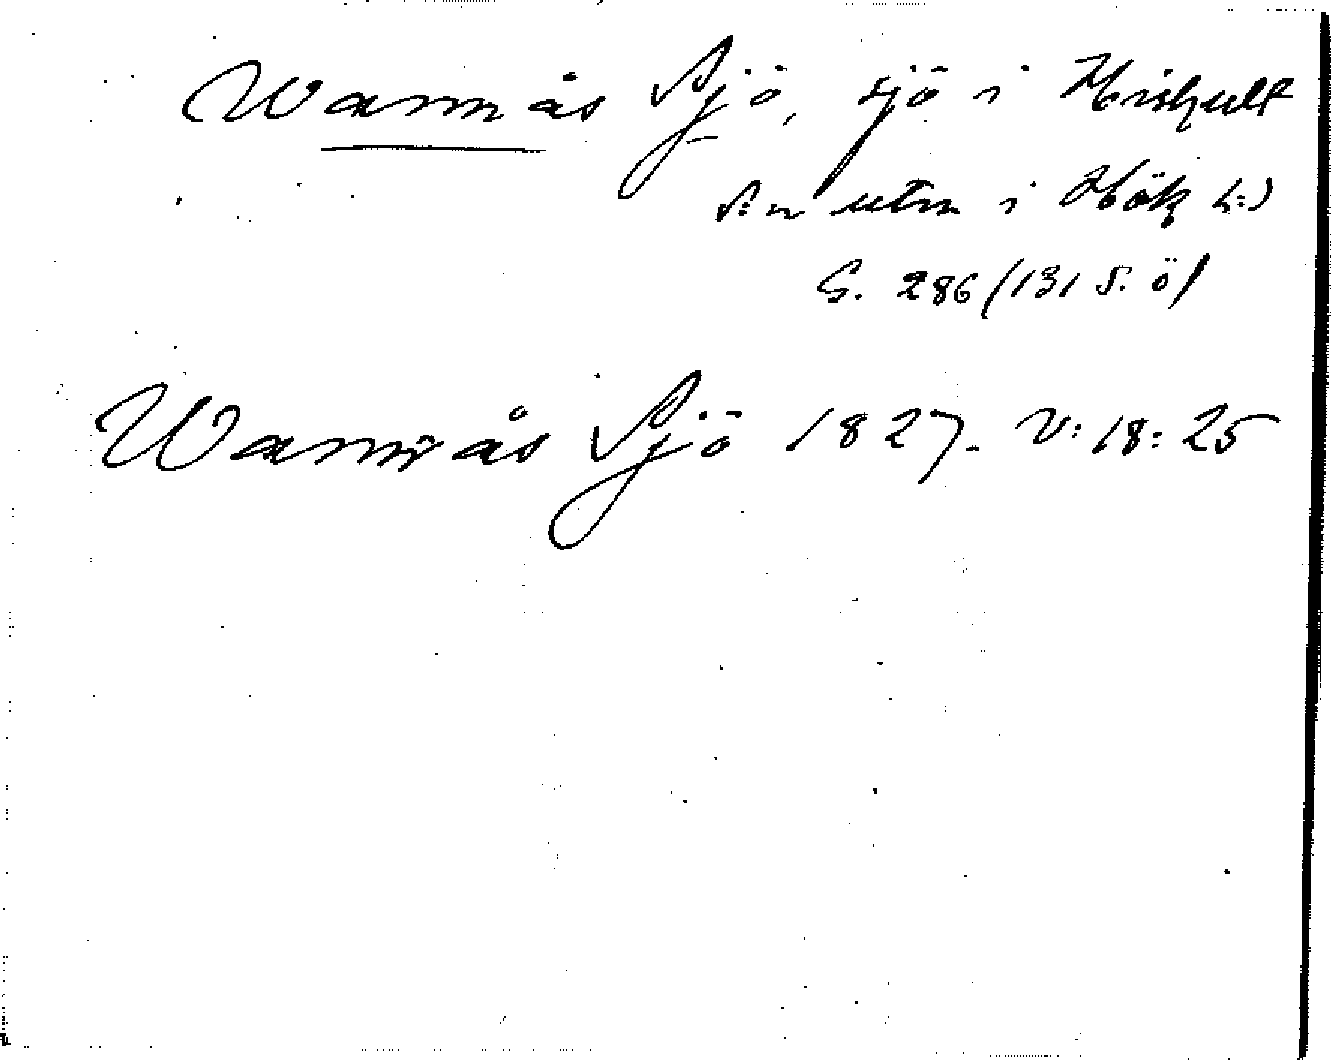 Wannås Sjö, sjö i Hishult
Sn utm i Hök hd
G. 286 (131 S. ö)
Wannås Sjö 1827. V: 18: 25